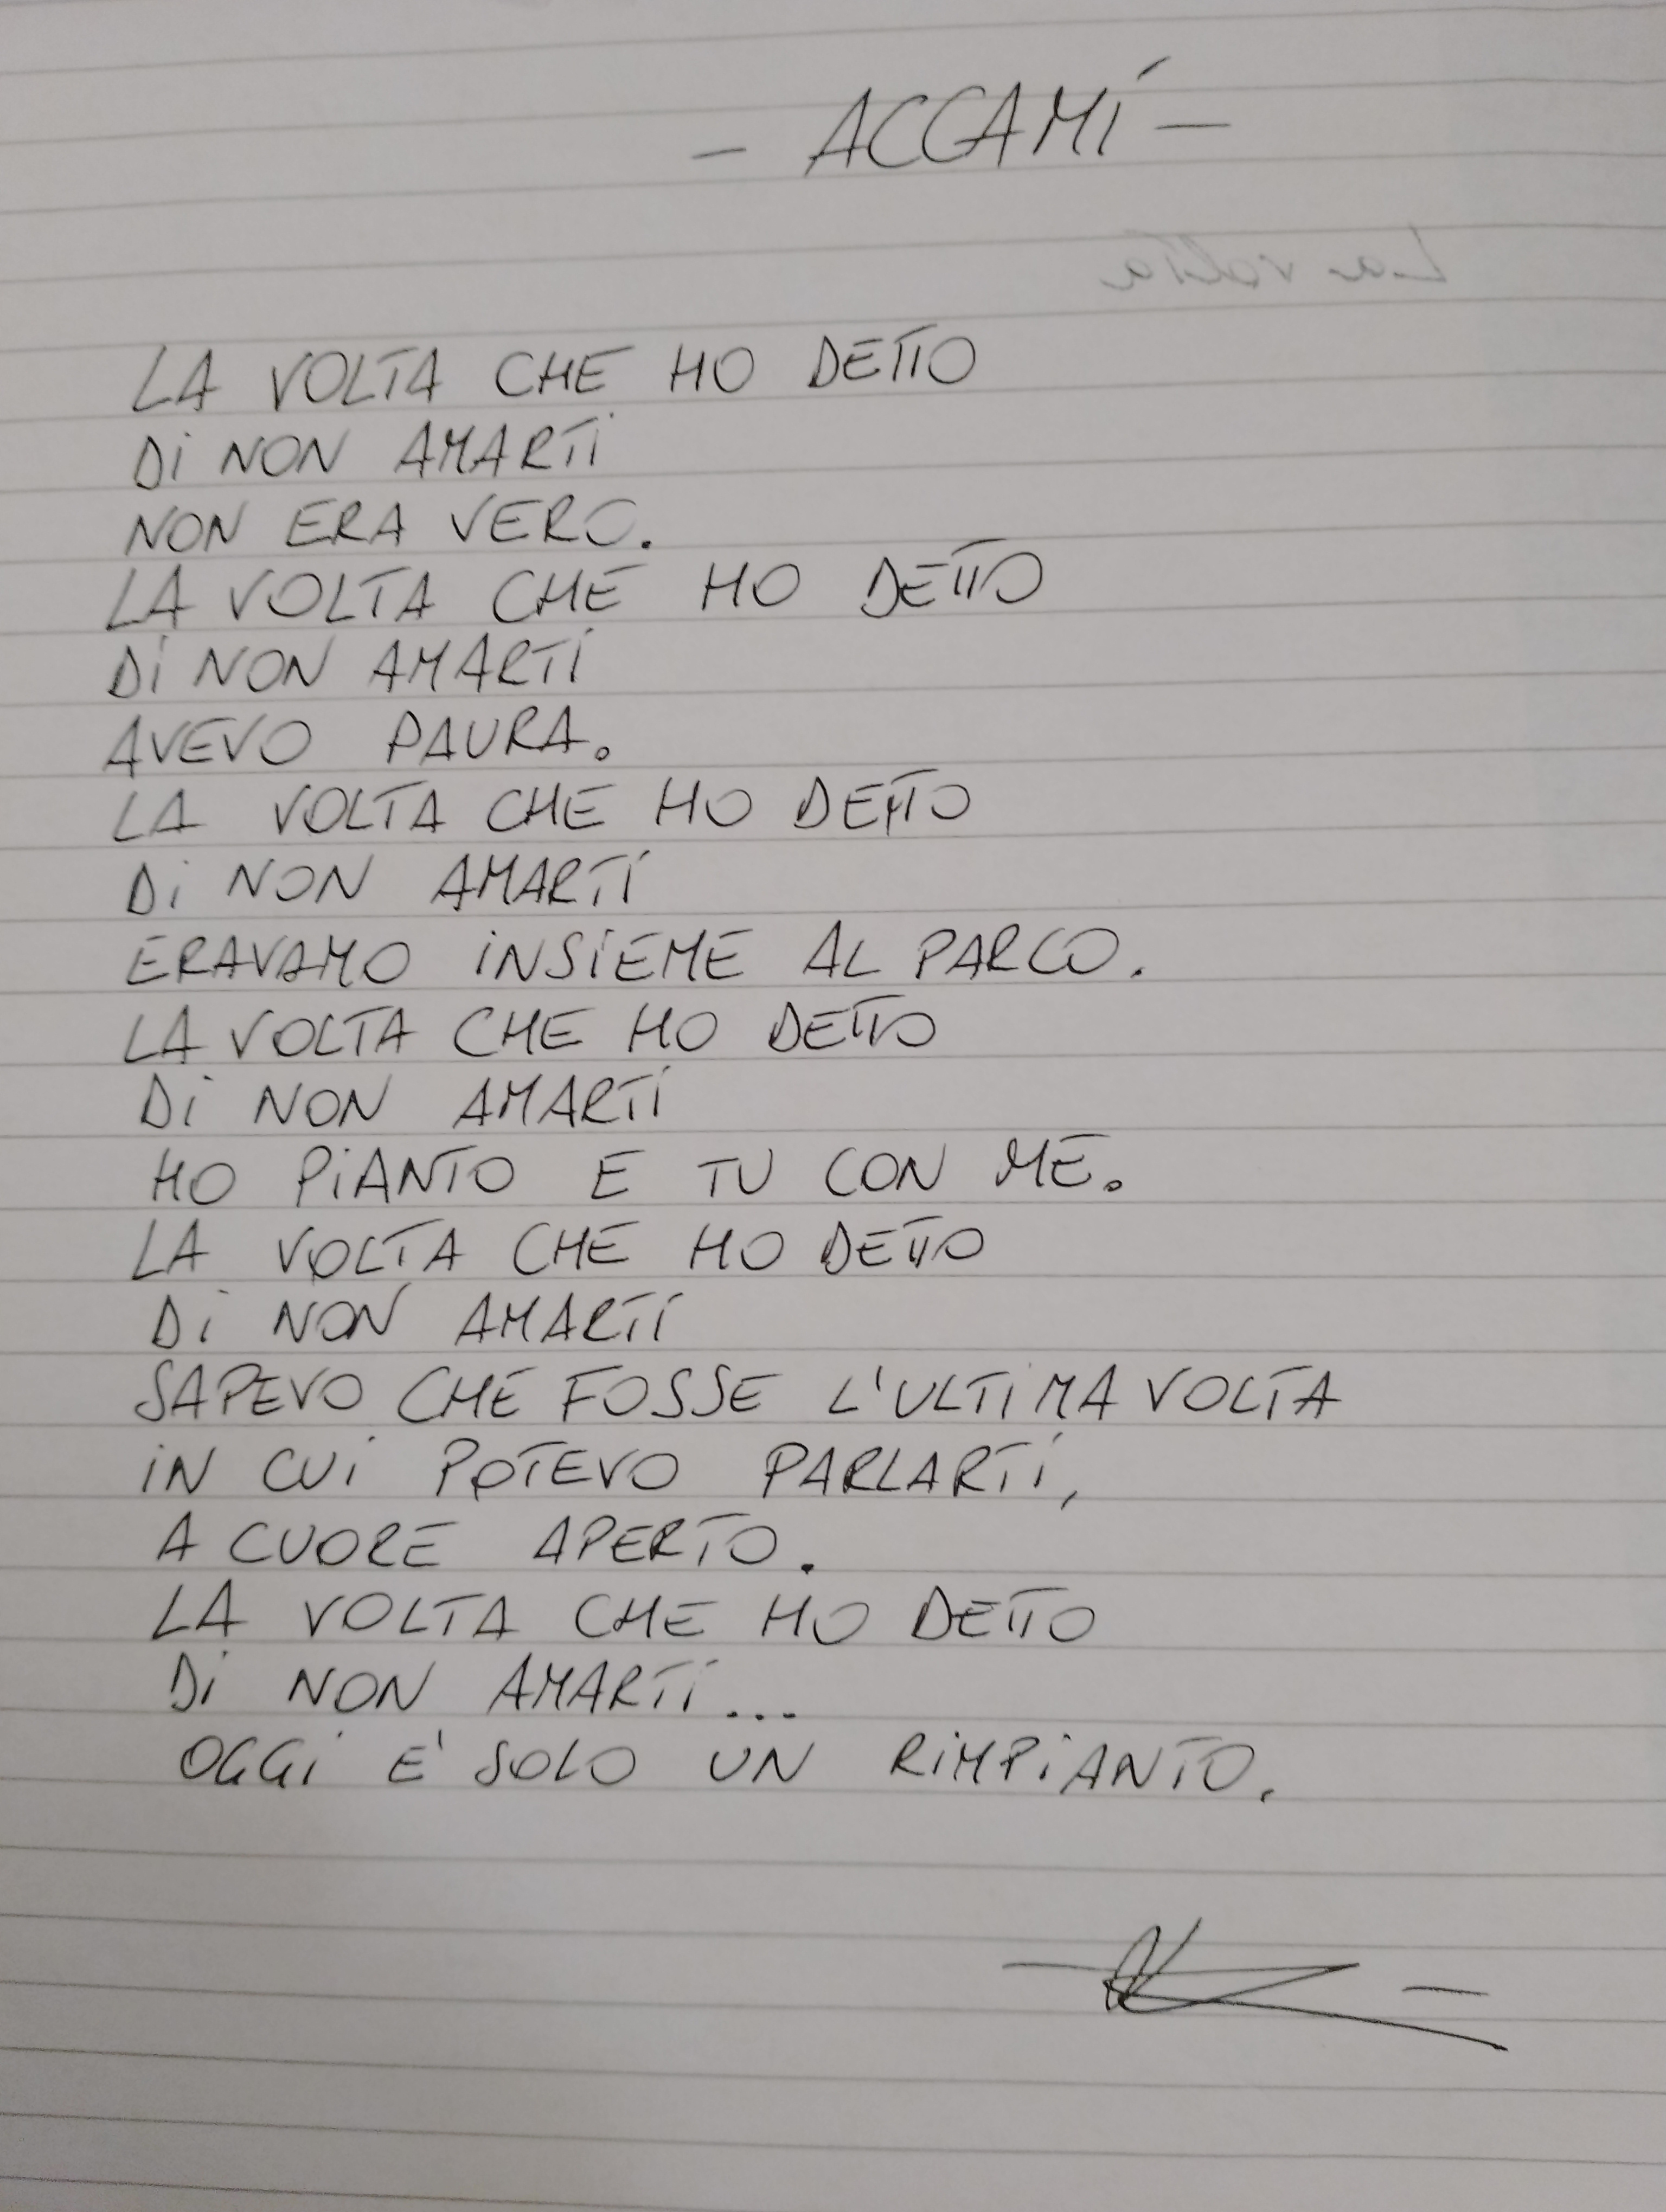 - ACCAMÍ -
La volta
LA VOLTA CHE HO DETTO
Di NON AMARTi
NON ERA VERO.
LA VOLTA CHE HO DETTO
Di NON AMARTi
AVEVO PAURA.
LA VOLTA CHE HO DETTO
Di NON AMARTi
ERAVAMO iNSiEME AL PARCO.
LA VOLTA CHE HO DETTO
Di NON AMARTi
HO PiANTO E TU CON ME.
LA VOLTA CHE HO DETTO
Di NON AMARTi
SAPEVO CHE FOSSE L'ULTiMA VOLTA
iN CUi POTEVO PARLARTi,
A CUORE APERTO.
LA VOLTA CHE HO DETTO
Di NON AMARTi...
OGGi E' SOLO UN RiMPiANTO.